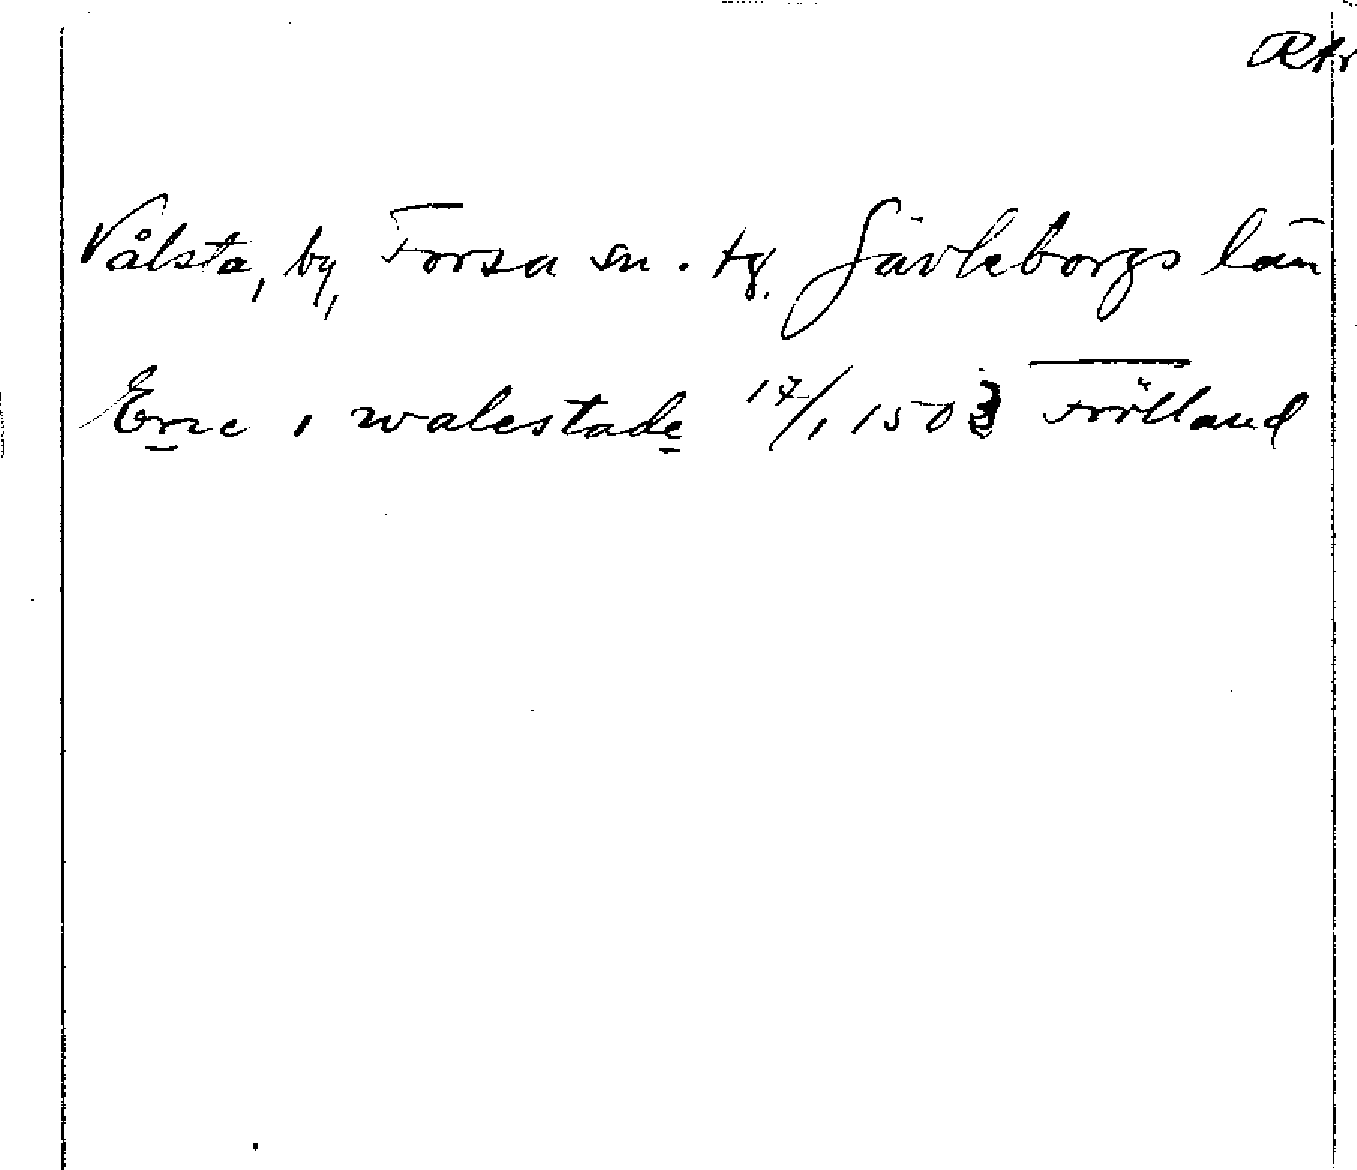 RAr
Vålsta, by, Forsa sn. tg. Gävleborgs län
Eric i walestade 17/1 1503 Frölland